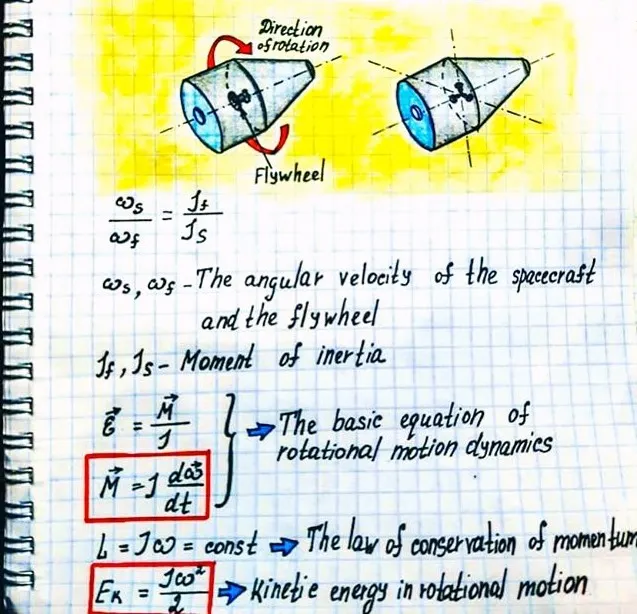 Direction
of rotation
Flywheel
ωs/ωf = Jf/Js
ωs, ωf - The angular velocity of the spacecraft
and the flywheel
Jf, Js - Moment of inertia
ε⃗ = M⃗/J
The basic equation of
rotational motion dynamics
M⃗ = J dω⃗/dt
L = Jω = const ⇒ The law of conservation of momentum
Eк = Jω²/2 ⇒ Kinetic energy in rotational motion